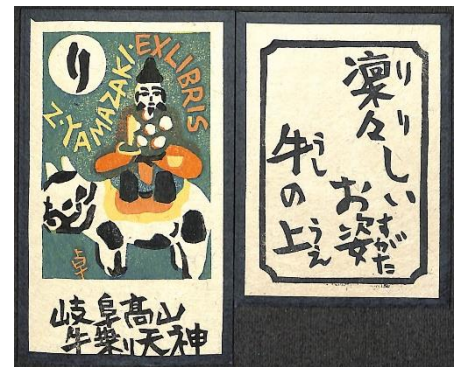 り
Z·YAMAZAKI·EXLIBRIS
卓
岐阜高山
牛乗り天神
凜々しい
りり
お姿
すがた
牛の上
うし うえ